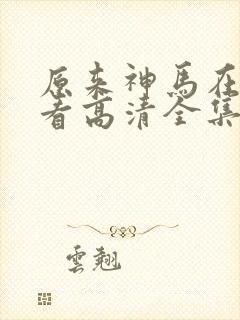 原来神马在
看高清全集
雲翹